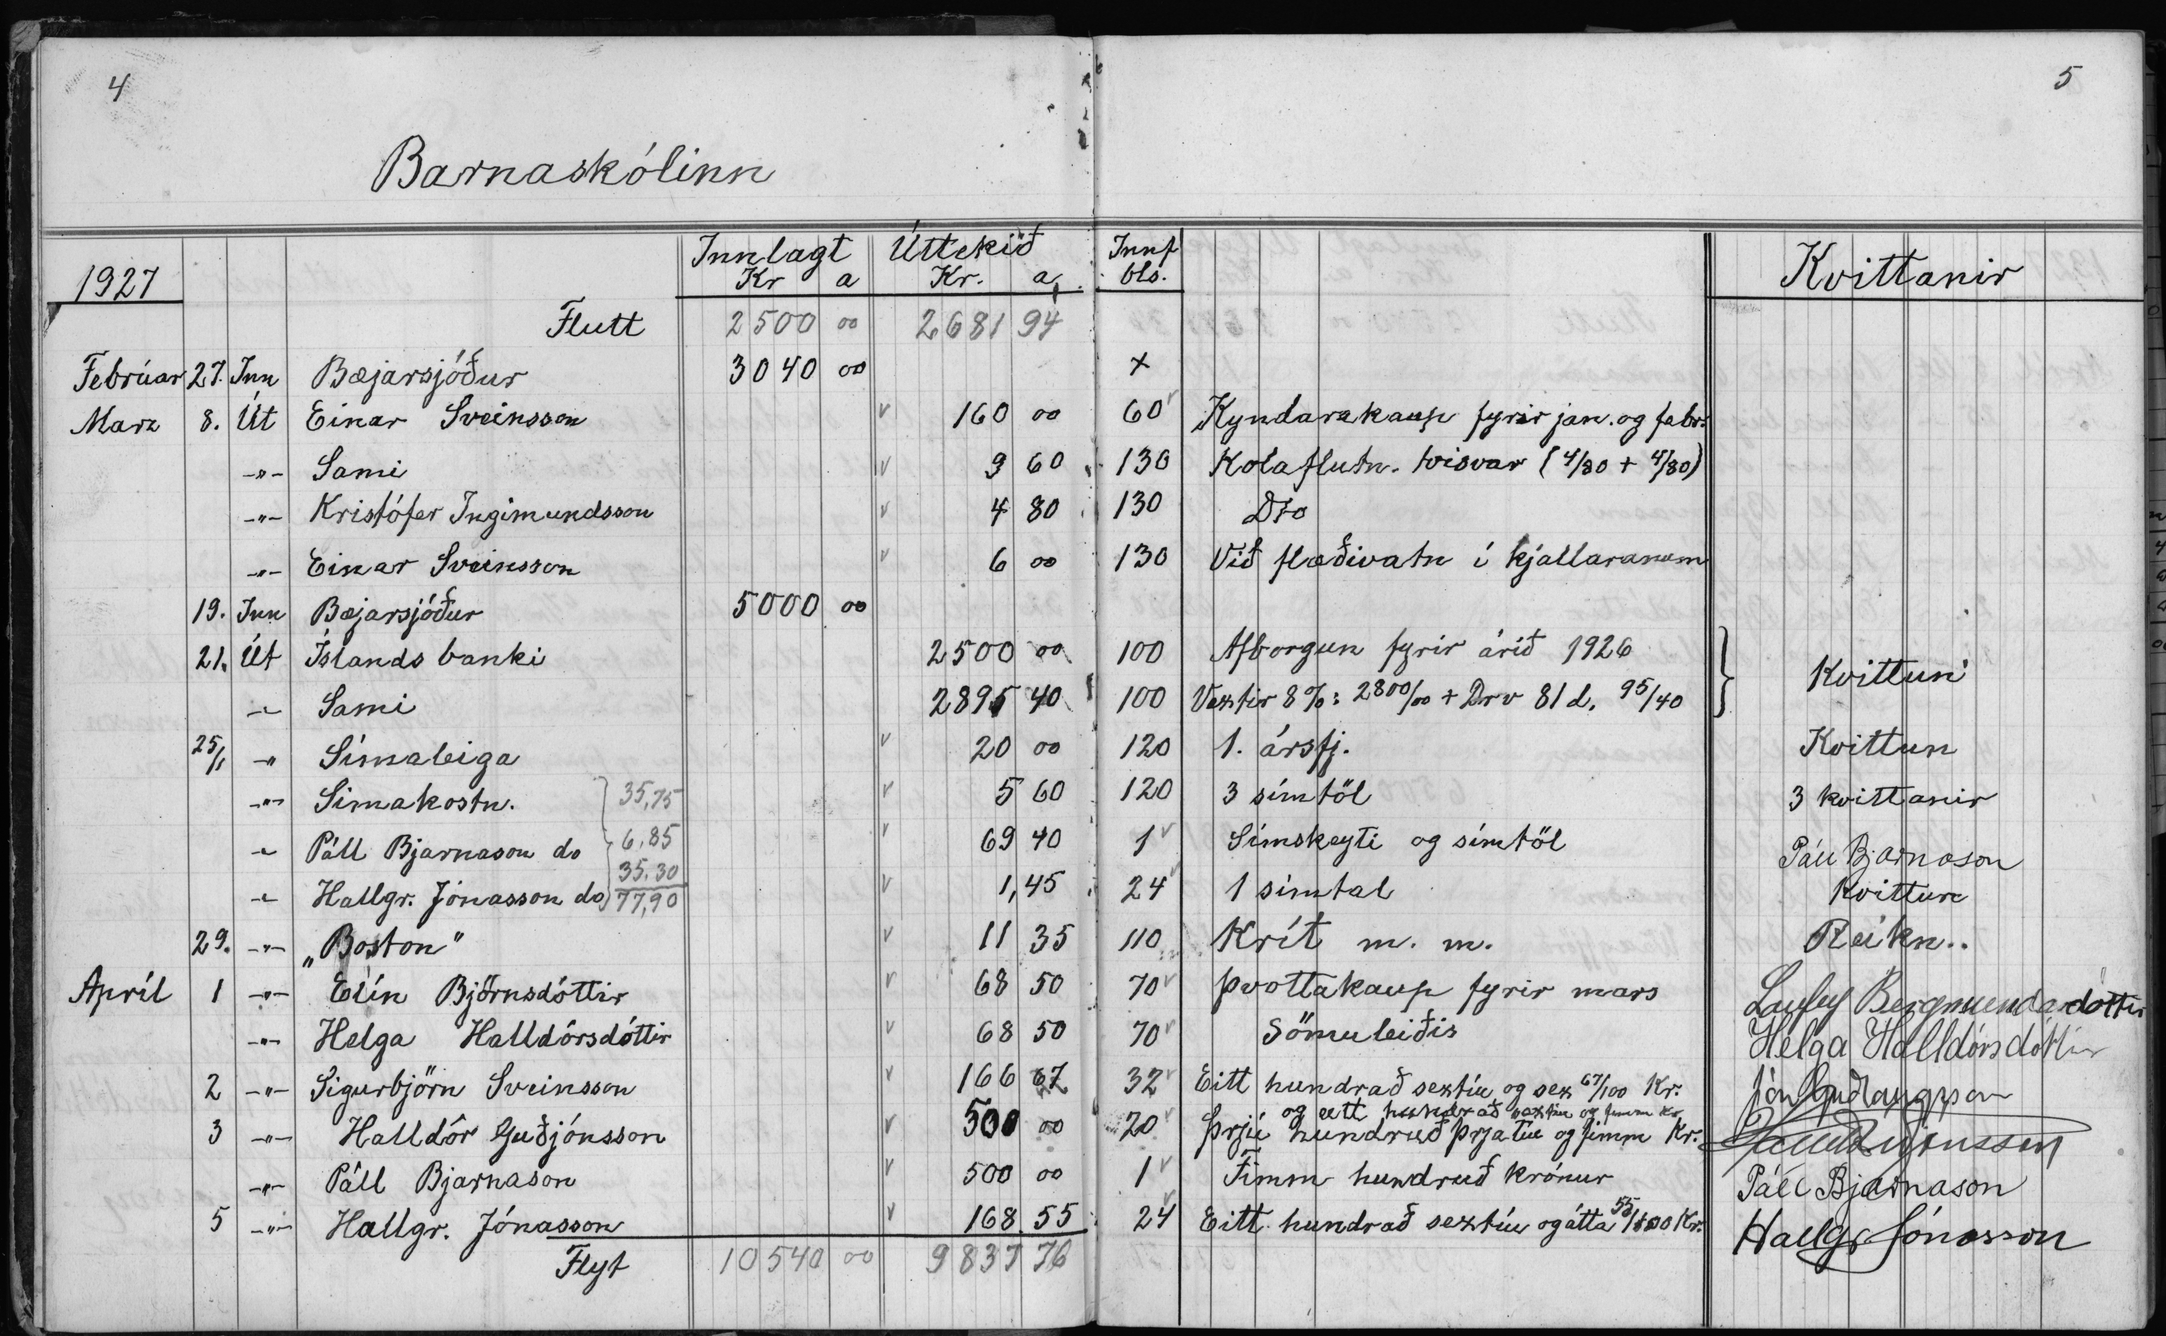 4
5
Barnaskólinn
1927 Innlagt Kr a Úttekið Kr. a Innf bls. Kvittanir
Flutt 2500 00 2681 94
Febrúar 27. Inn Bæjarsjóður 3040 00 x
Marz 8. Út Einar Sveinsson √ 160 00 60 √ Kyndarakaup fyrir jan. og febr.
-"- Sami √ 9 60 130 Kolaflutn. tvisvar (4/80 + 4/80)
-"- Kristófer Ingimundsson √ 4 80 130 Dto
-"- Einar Sveinsson √ 6 00 130 Við flæðivatn í kjallaranum
19. Inn Bæjarsjóður 5000 00
21. Út Íslands banki 2500 00 100 Afborgun fyrir árið 1926 } Kvittun
-"- Sami 2895 40 100 Vextir 8%: 2800/00 + Drv 81 d. 95/40
25/1 -"- Símaleiga √ 20 00 120 1. ársfj. Kvittun
-"- Símakostn. 35,75 √ 5 60 120 3 símtöl 3 kvittanir
-"- Páll Bjarnason do 6,85 √ 69 40 1 √ Símskeyti og símtöl Páll Bjarnason
35.30
-"- Hallgr. Jónasson do 77,90 √ 1,45 24 √ 1 símtal Kvittun
29. -"- "Boston" √ 11 35 110 Krít m. m. Reikn..
Apríl 1 -"- Elín Björnsdóttir √ 68 50 70 √ þvottakaup fyrir mars Bergmundardóttir
-"- Helga Halldórsdóttir √ 68 50 70 √ Sömuleiðis Helga Halldórsdóttir
2 -"- Sigurbjörn Sveinsson √ 166 67 32 √ Eitt hundrað sextíu og sex 67/100 Kr. Jón Guðlaugsson
og eitt hundrað sextíu og fimm kr
3 -"- Halldór Guðjónsson √ 500 00 20 √ Þrjú hundruð þrjatíu og fimm Kr.
-"- Páll Bjarnason √ 500 00 1 √ Fimm hundruð krónur Páll Bjarnason
5 -"- Hallgr. Jónasson √ 168 55 24 Eitt hundrað sextíu og átta 55/100 Kr. Hallgr Jónasson
Flyt 10540 00 9837 76